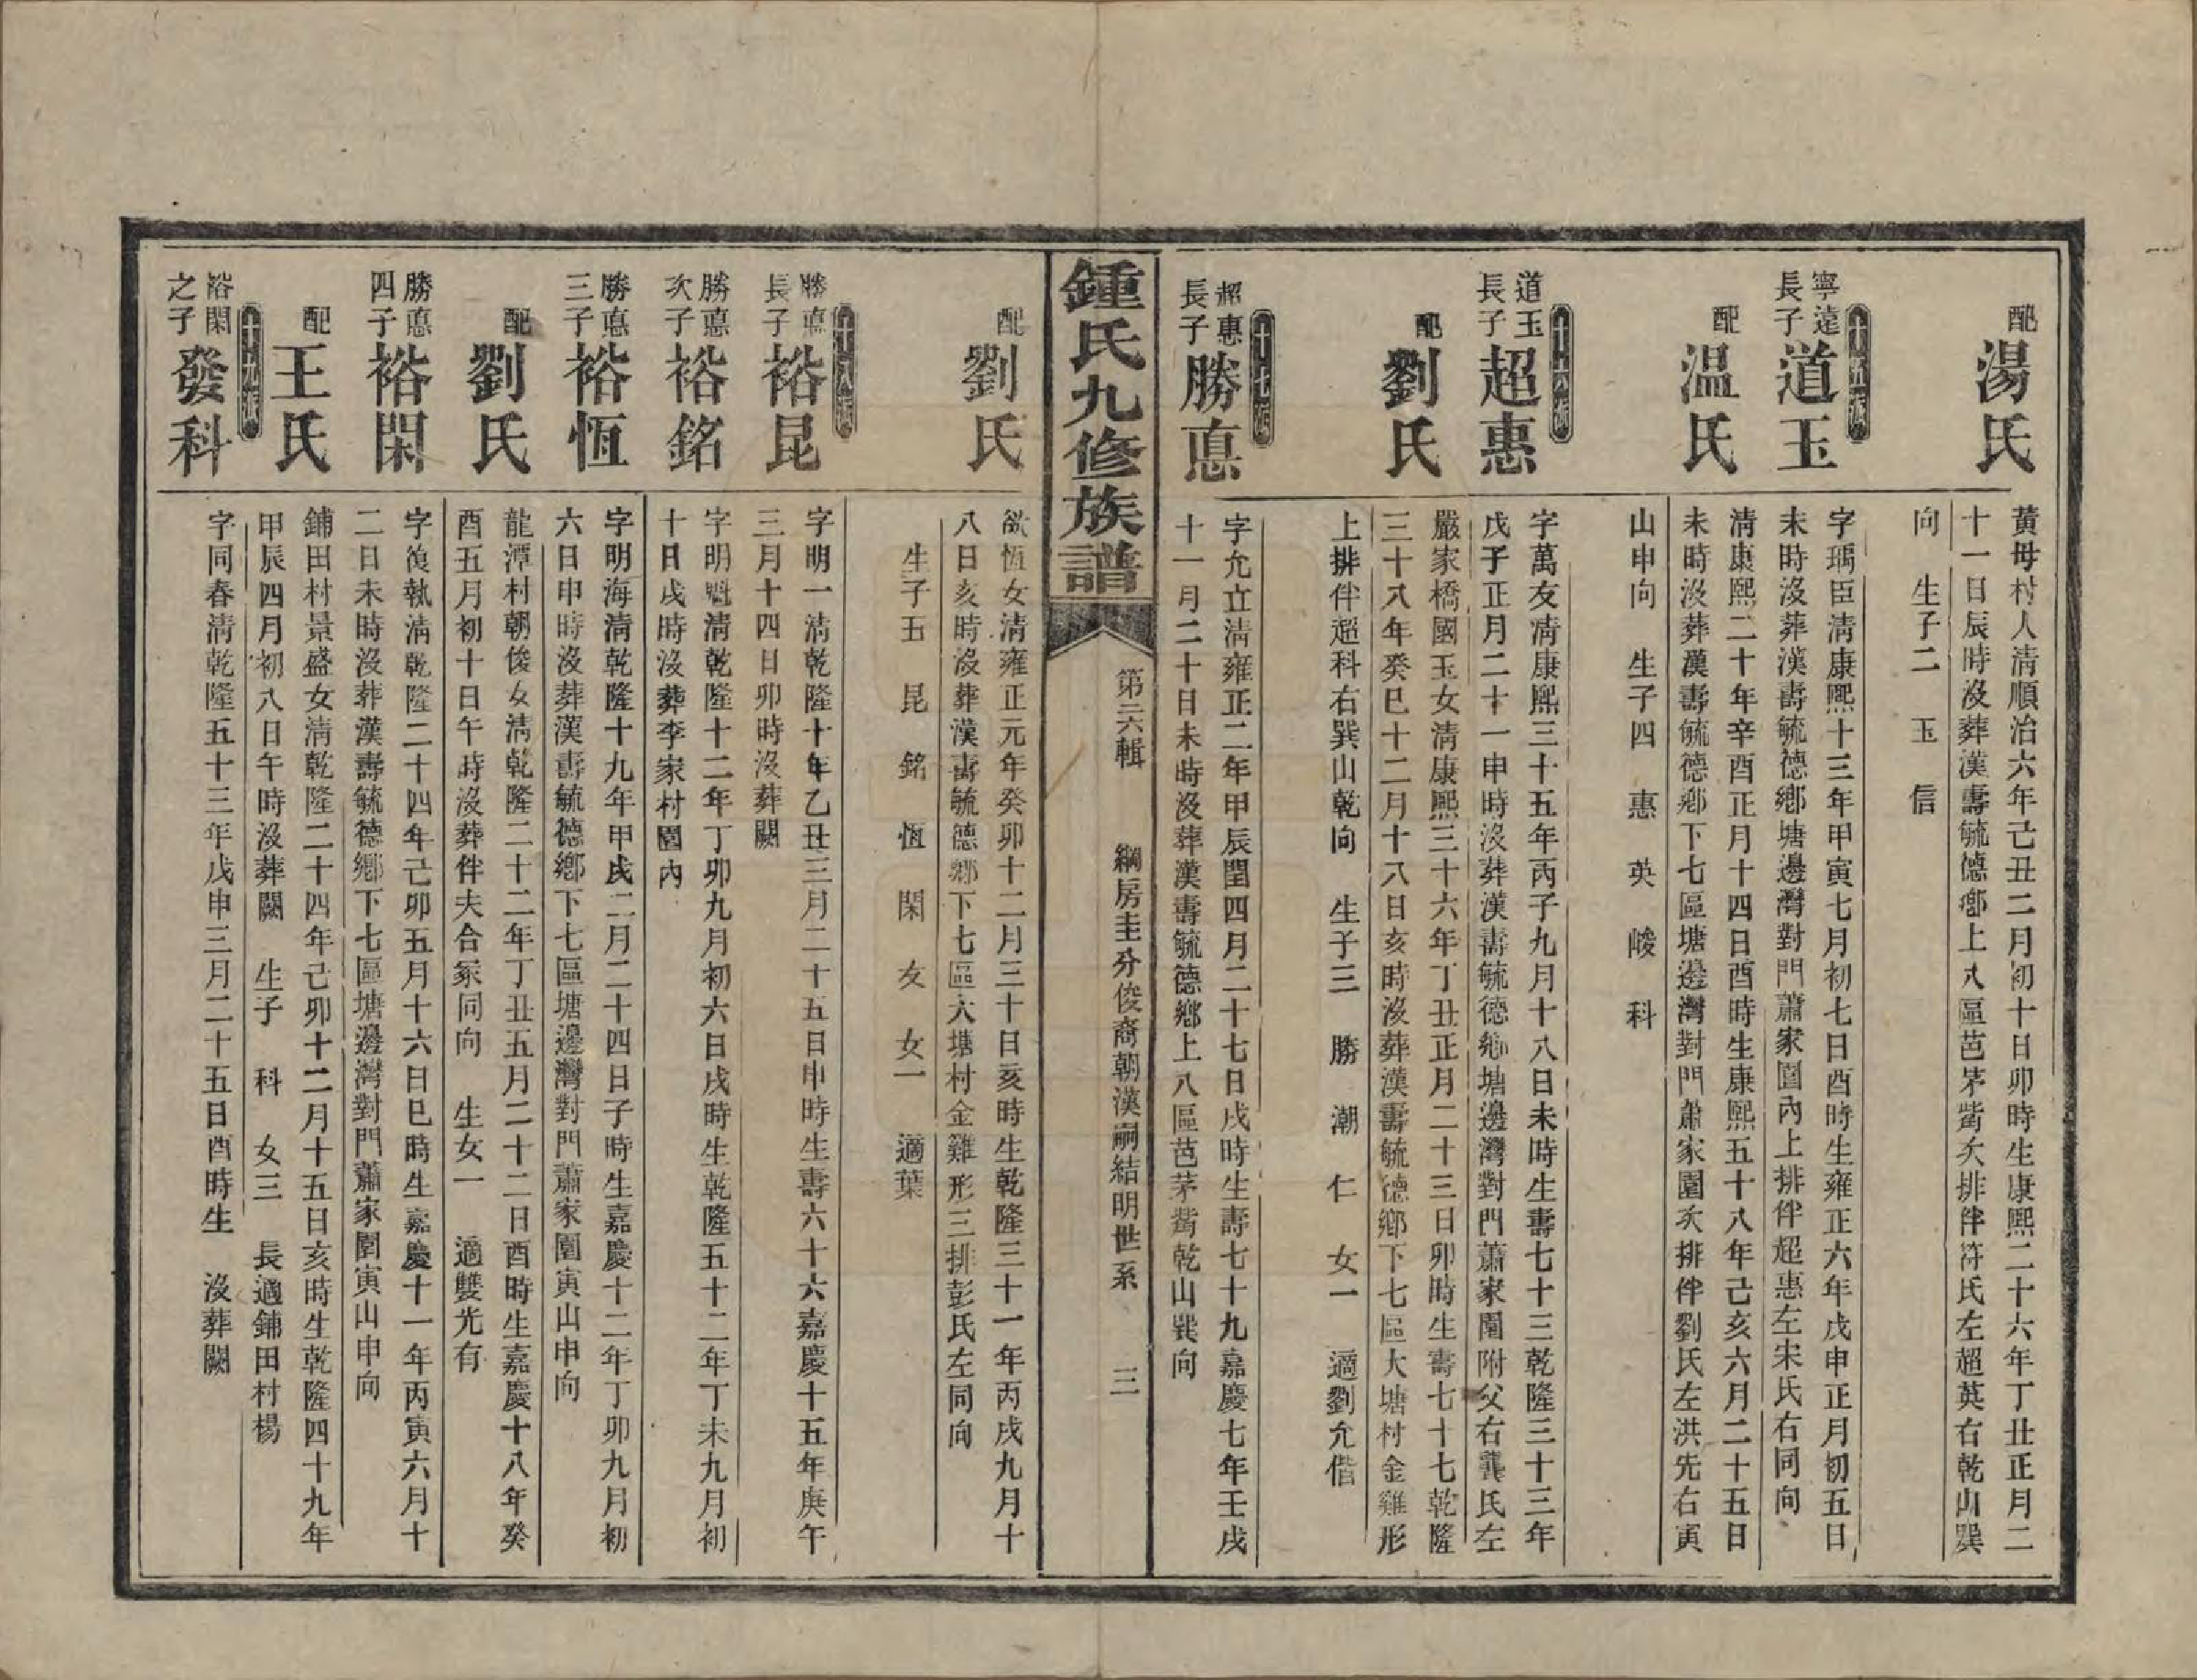 配
湯氏
黃毋村人淸順治六年己丑二月初十日卯時生康熙二十六年丁丑正月二
十一日辰時沒葬漢壽毓德鄉上八區芭茅嘴次排伴符氏左超英右乾山巽
向 生子二 玉 信
十五派
寧遠
長子
道玉
字瑀臣淸康熙十三年甲寅七月初七日酉時生雍正六年戊申正月初五日
未時沒葬漢壽毓德鄉塘邊灣對門蕭家園內上排伴超惠左宋氏右同向
配
温氏
淸康熙二十年辛酉正月十四日酉時生康熙五十八年己亥六月二十五日
未時沒葬漢壽毓德鄉下七區塘邊灣對門蕭家園次排伴劉氏左洪先右寅
山申向 生子四 惠 英 峻 科
十六派
道玉
長子
超惠
字萬友淸康熙三十五年丙子九月十八日未時生壽七十三乾隆三十三年
戊子正月二十一申時沒葬漢壽毓德鄉塘邊灣對門蕭家園附父右龔氏左
配
劉氏
嚴家橋國玉女淸康熙三十六年丁丑正月二十三日卯時生壽七十七乾隆
三十八年癸巳十二月十八日亥時沒葬漢壽毓德鄉下七區大塘村金雞形
上排伴超科右巽山乾向 生子三 勝 潮 仁 女一 適劉允偕
十七派
超惠
長子
勝悳
字允立淸雍正二年甲辰閏四月二十七日戌時生壽七十九嘉慶七年壬戌
十一月二十日未時沒葬漢壽毓德鄉上八區芭茅嘴乾山巽向
鍾氏九修族譜
第六輯 綱房圭分俊裔朝漢嗣結明世系 三
配
劉氏
欲恆女淸雍正元年癸卯十二月三十日亥時生乾隆三十一年丙戌九月十
八日亥時沒葬漢壽毓德鄉下七區大塘村金雞形三排彭氏左同向
生子五 昆 銘 恆 閑 友 女一 適葉
十八派
勝悳
長子
裕昆
字明一淸乾隆十年乙丑三月二十五日申時生壽六十六嘉慶十五年庚午
三月十四日卯時沒葬闕
勝悳
次子
裕銘
字明魁淸乾隆十二年丁卯九月初六日戌時生乾隆五十二年丁未九月初
十日戌時沒葬李家村園內
勝悳
三子
裕恆
字明海淸乾隆十九年甲戌二月二十四日子時生嘉慶十二年丁卯九月初
六日申時沒葬漢壽毓德鄉下七區塘邊灣對門蕭家園寅山申向
配
劉氏
龍潭村朝俊女淸乾隆二十二年丁丑五月二十二日酉時生嘉慶十八年癸
酉五月初十日午時沒葬伴夫合冢同向 生女一 適雙光有
勝悳
四子
裕閑
字復執淸乾隆二十四年己卯五月十六日巳時生嘉慶十一年丙寅六月十
二日未時沒葬漢壽毓德鄉下七區塘邊灣對門蕭家園寅山申向
配
王氏
鋪田村景盛女淸乾隆二十四年己卯十二月十五日亥時生乾隆四十九年
甲辰四月初八日午時沒葬闕 生子 科 女三 長適鋪田村楊
十九派
裕閑
之子
發科
字同春淸乾隆五十三年戊申三月二十五日酉時生 沒葬闕